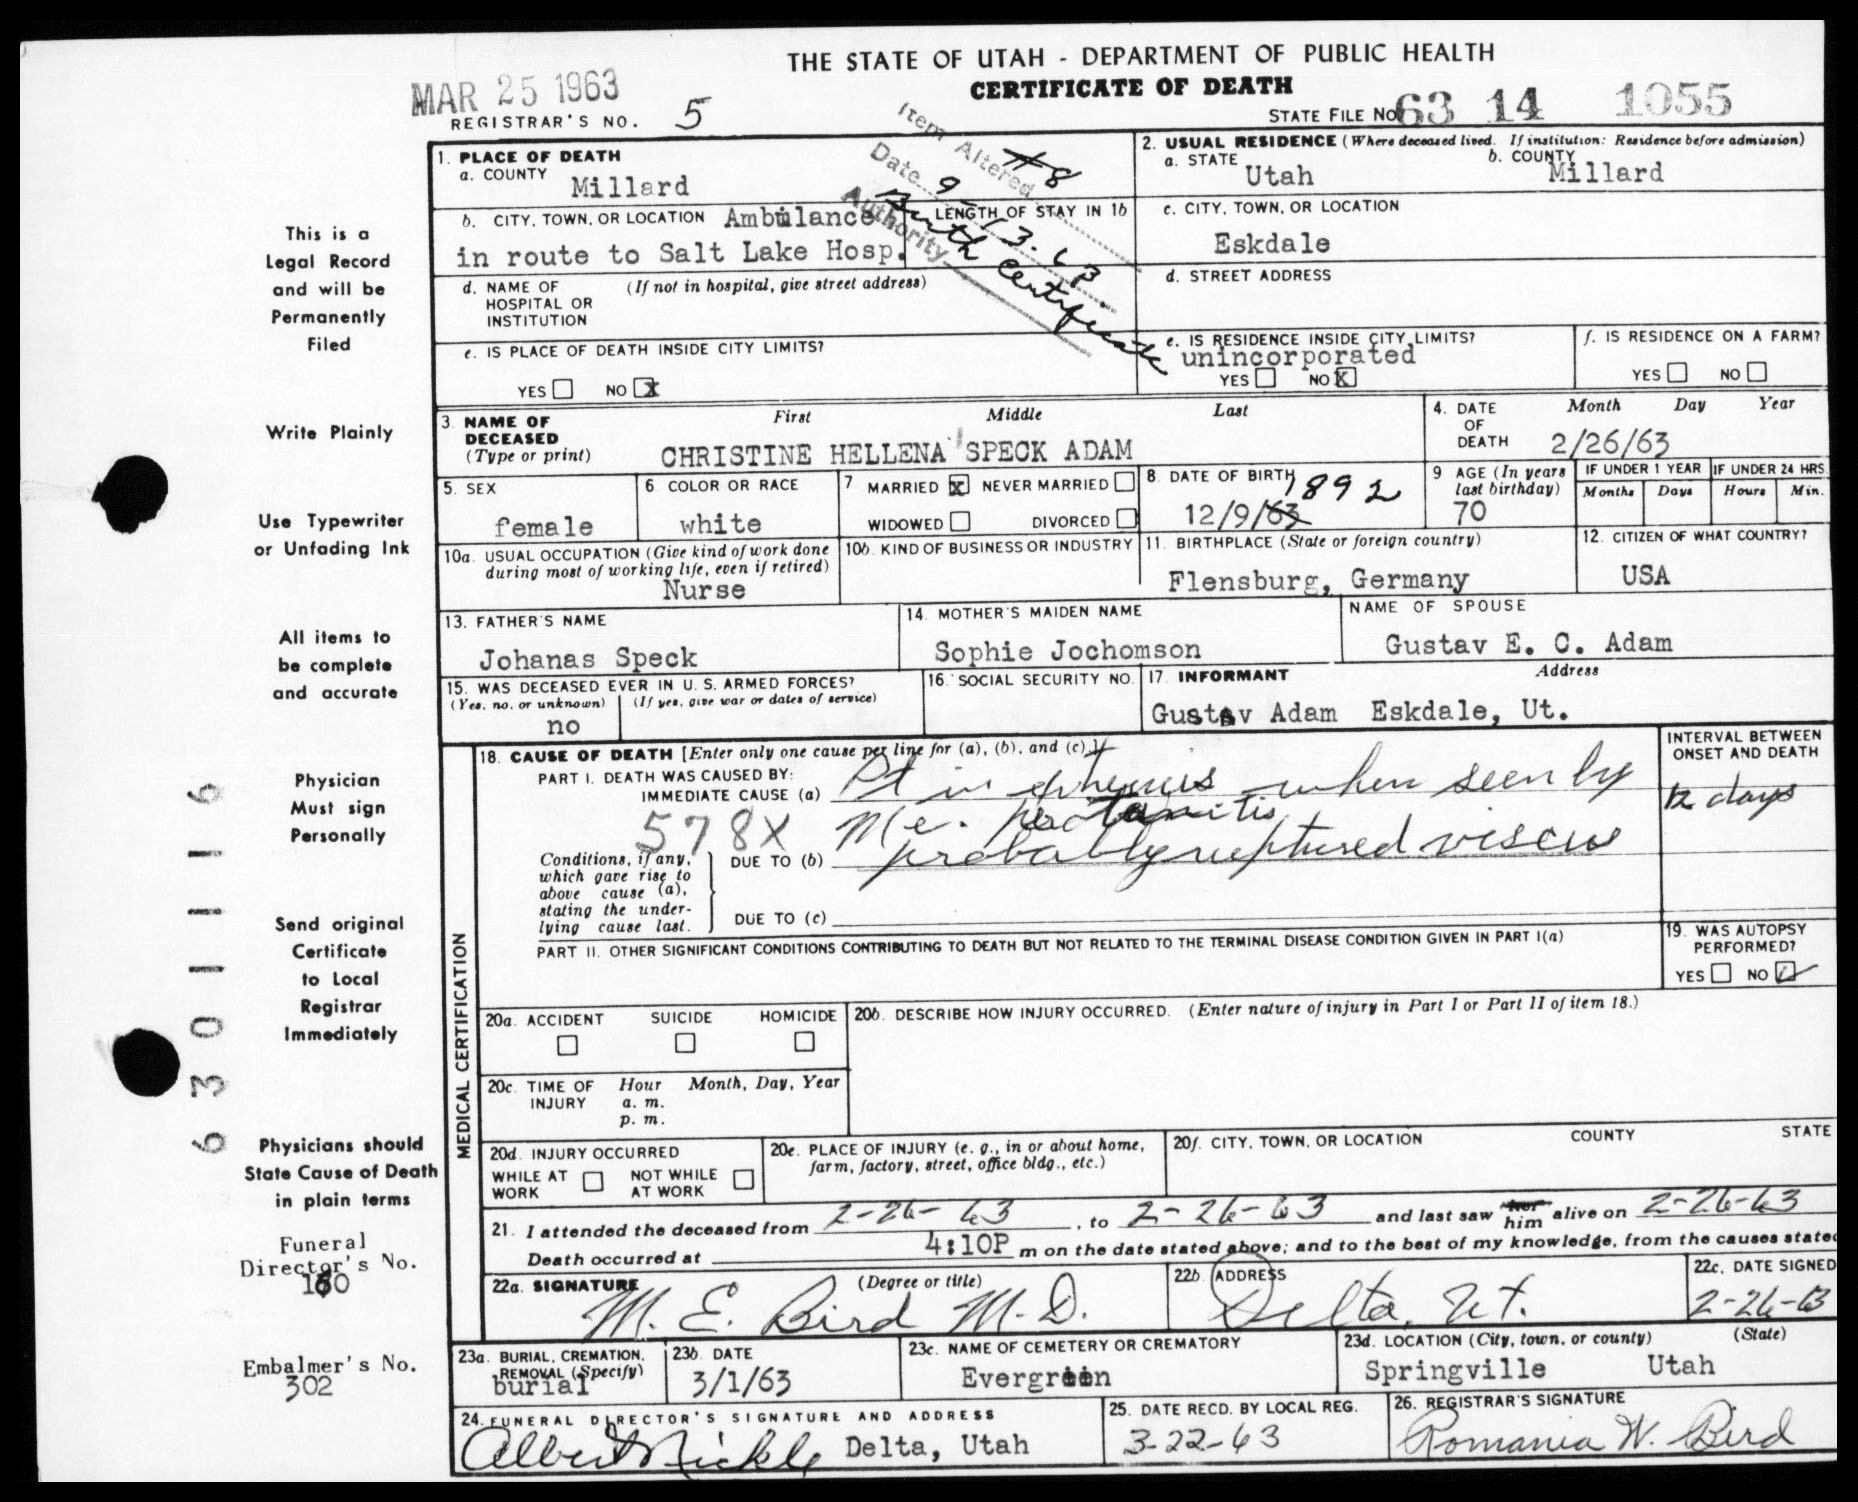 THE STATE OF UTAH - DEPARTMENT OF PUBLIC HEALTH
CERTIFICATE OF DEATH
MAR 25 1963
REGISTRAR'S NO. 5
STATE FILE NO. 63 14 1055
Item Altered #8
Date 9-13-63
Authority Birth Certificate
This is a
Legal Record
and will be
Permanently
Filed
Write Plainly
Use Typewriter
or Unfading Ink
All items to
be complete
and accurate
Physician
Must sign
Personally
Send original
Certificate
to Local
Registrar
Immediately
Physicians should
State Cause of Death
in plain terms
Funeral
Director's No.
Embalmer's No.
302
6301116
1. PLACE OF DEATH
a. COUNTY
Millard
b. CITY, TOWN, OR LOCATION Ambulance
in route to Salt Lake Hosp.
LENGTH OF STAY IN 1b
d. NAME OF HOSPITAL OR INSTITUTION (If not in hospital, give street address)
e. IS PLACE OF DEATH INSIDE CITY LIMITS?
YES NO X
2. USUAL RESIDENCE (Where deceased lived. If institution: Residence before admission)
a. STATE Utah
b. COUNTY Millard
c. CITY, TOWN, OR LOCATION
Eskdale
d. STREET ADDRESS
e. IS RESIDENCE INSIDE CITY LIMITS?
unincorporated
YES NO X
f. IS RESIDENCE ON A FARM?
YES NO
3. NAME OF DECEASED (Type or print)
First Middle Last
CHRISTINE HELLENA SPECK ADAM
4. DATE OF DEATH
Month Day Year
2/26/63
5. SEX
female
6. COLOR OR RACE
white
7. MARRIED X NEVER MARRIED
WIDOWED DIVORCED
8. DATE OF BIRTH 1892
12/9/63
9 AGE (In years last birthday)
70
IF UNDER 1 YEAR
Months Days
IF UNDER 24 HRS.
Hours Min.
10a. USUAL OCCUPATION (Give kind of work done
during most of working life, even if retired)
Nurse
10b. KIND OF BUSINESS OR INDUSTRY
11. BIRTHPLACE (State or foreign country)
Flensburg, Germany
12. CITIZEN OF WHAT COUNTRY?
USA
13. FATHER'S NAME
Johanas Speck
14. MOTHER'S MAIDEN NAME
Sophie Jochomson
NAME OF SPOUSE
Gustav E. C. Adam
15. WAS DECEASED EVER IN U. S. ARMED FORCES?
(Yes, no, or unknown) (If yes, give war or dates of service)
no
16. SOCIAL SECURITY NO.
17. INFORMANT Address
Gustav Adam Eskdale, Ut.
MEDICAL CERTIFICATION
18. CAUSE OF DEATH [Enter only one cause per line for (a), (b), and (c).]
INTERVAL BETWEEN ONSET AND DEATH
PART I. DEATH WAS CAUSED BY:
IMMEDIATE CAUSE (a) Pt in when seen by
12 days
578X Me.
Conditions, if any, which gave rise to above cause (a), stating the underlying cause last.
DUE TO (b) probably ruptured viscus
DUE TO (c)
PART II. OTHER SIGNIFICANT CONDITIONS CONTRIBUTING TO DEATH BUT NOT RELATED TO THE TERMINAL DISEASE CONDITION GIVEN IN PART I(a)
19. WAS AUTOPSY PERFORMED?
YES NO
20a. ACCIDENT SUICIDE HOMICIDE
20b. DESCRIBE HOW INJURY OCCURRED. (Enter nature of injury in Part I or Part II of item 18.)
20c. TIME OF INJURY
Hour Month, Day, Year
a. m.
p. m.
20d. INJURY OCCURRED
WHILE AT WORK NOT WHILE AT WORK
20e. PLACE OF INJURY (e. g., in or about home,
farm, factory, street, office bldg., etc.)
20f. CITY, TOWN, OR LOCATION COUNTY STATE
21. I attended the deceased from 2-26-63, to 2-26-63 and last saw her him alive on 2-26-63
Death occurred at 4:10P m on the date stated above; and to the best of my knowledge, from the causes stated
22a. SIGNATURE (Degree or title)
M. E. Bird M.D.
22b. ADDRESS
Delta, Ut.
22c. DATE SIGNED
2-26-63
23a. BURIAL, CREMATION, REMOVAL (Specify)
burial
23b. DATE
3/1/63
23c. NAME OF CEMETERY OR CREMATORY
Evergreen
23d. LOCATION (City, town, or county) (State)
Springville Utah
24. FUNERAL DIRECTOR'S SIGNATURE AND ADDRESS
Albert Nickle Delta, Utah
25. DATE RECD. BY LOCAL REG.
3-22-63
26. REGISTRAR'S SIGNATURE
Romania W. Bird